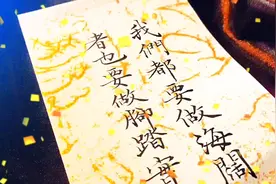 我們都要做海闊
者也要做腳踏實